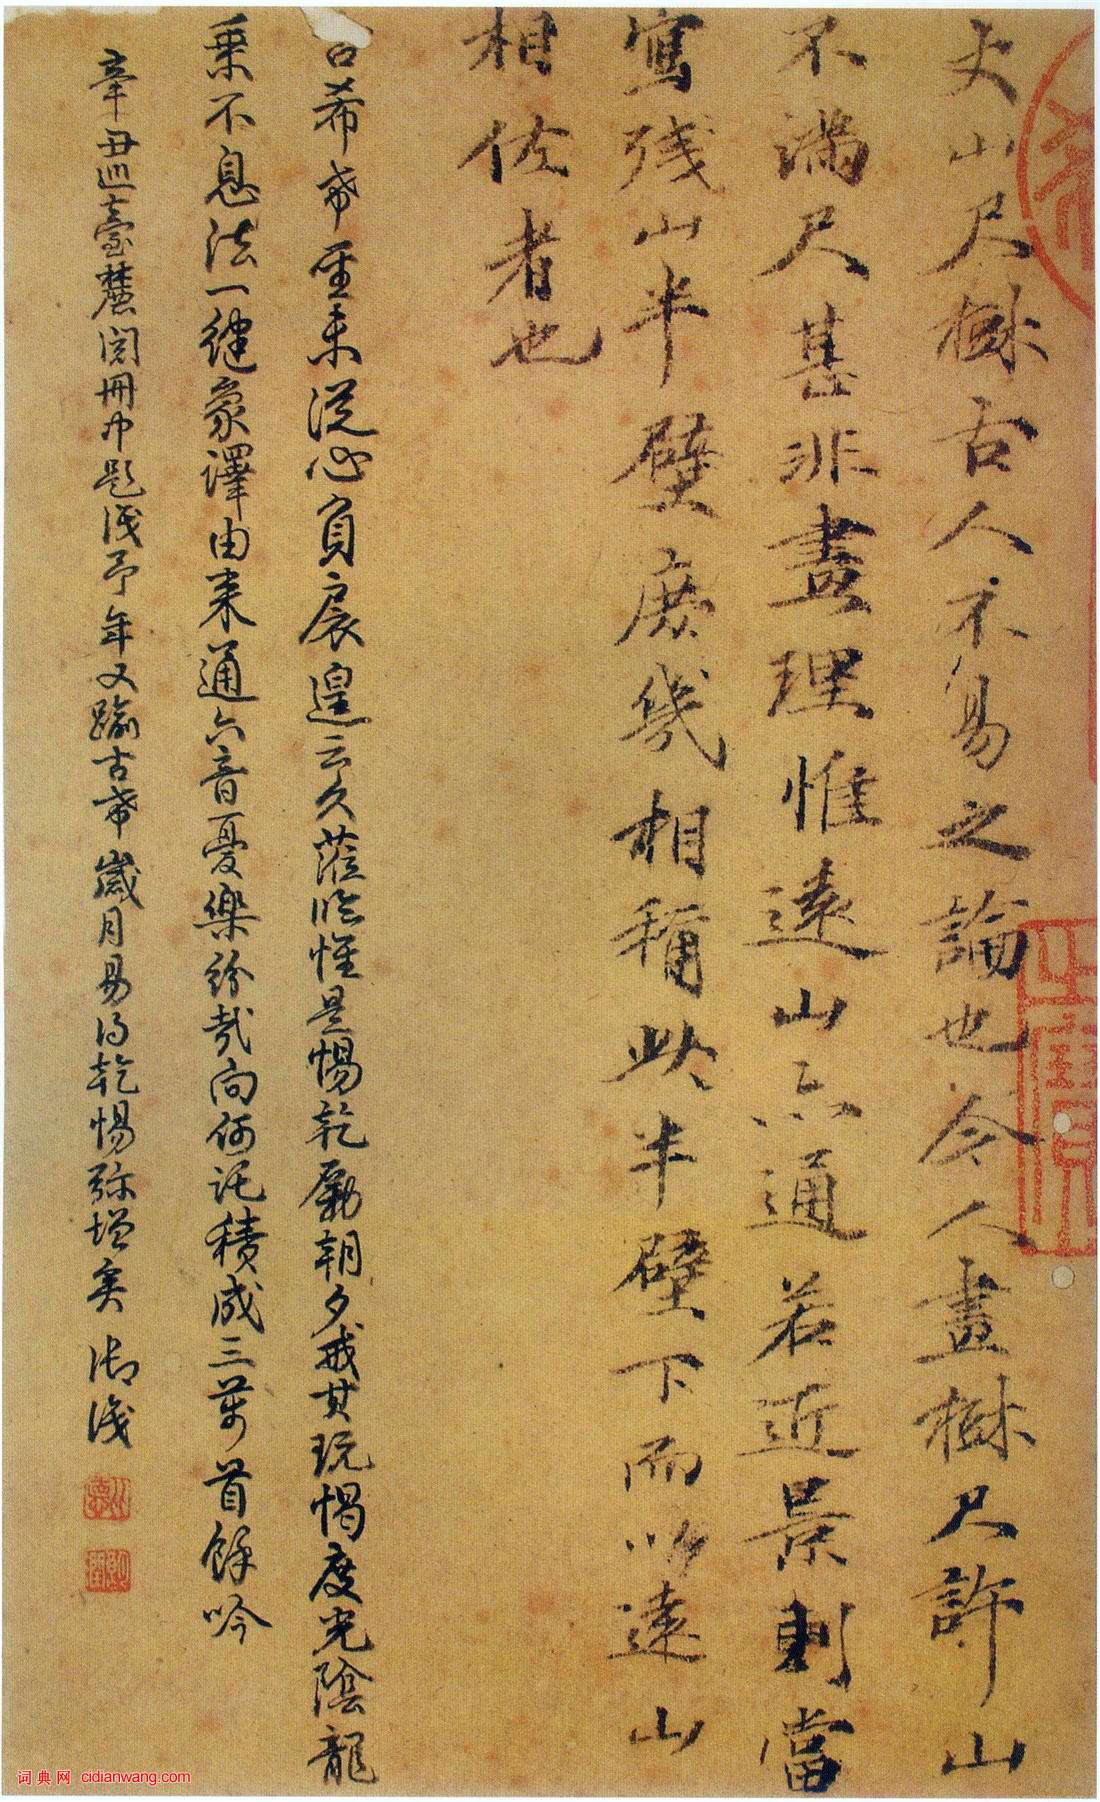 丈山尺樹古人不易之論也今人畫樹尺許山
不滿尺甚非畫理惟遠山亦通若近景則當
寫殘山半壁庶幾相稱此半壁下而以遠山
相佐者也
古希希至未從心負扆遑云久蒞臨惟是惕乾勵朝夕戒其玩愒度光陰龍
乘不息法一健象譯由來通六音憂樂紛哉向何託積成三萬首餘吟
辛丑巡臺麓閱冊中題識予年又踰古希歲月易得乾惕彌增矣 御識
词典网 cidianwang.com